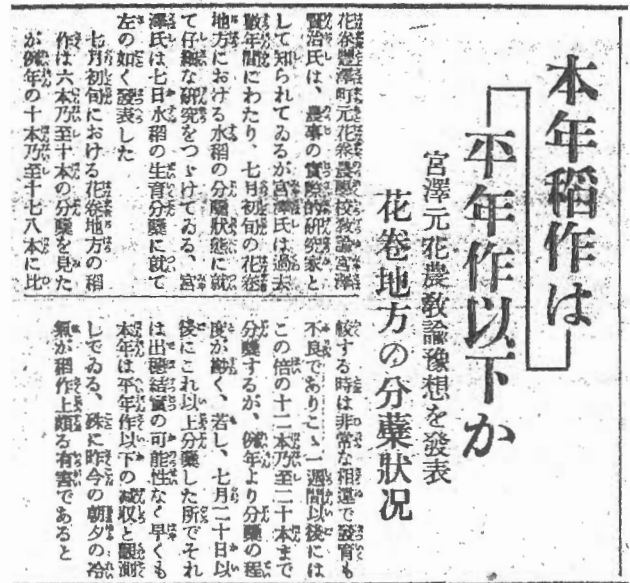 本年稲作は
平年作以下か
宮澤元花農教諭豫想を發表
花巻地方の分蘗狀况
花巻豐澤町元花巻農學校教諭宮澤
賢治氏は、農事の實際的研究家と
して知られてゐるが宮澤氏は過去
數年間にわたり、七月初旬の花巻
地方における水稲の分蘗狀態に就
て仔細な研究をつゞけてゐる、宮
澤氏は七日水稲の生育分蘗に就て
左の如く發表した
七月初旬における花巻地方の稲
作は六本乃至十本の分蘗を見た
が例年の十本乃至十七八本に比
較する時は非常な相違で發育も
不良でありこゝ一週間以後には
この倍の十二本乃至二十本まで
分蘗するが、例年より分蘗の程
度が尠く、若し、七月二十日以
後にこれ以上分蘗した所でそれ
は出穂結實の可能性なく早くも
本年は平年作以下の減収と觀測
してゐる、殊に昨今の朝夕の冷
氣が稲作上頗る有害であると